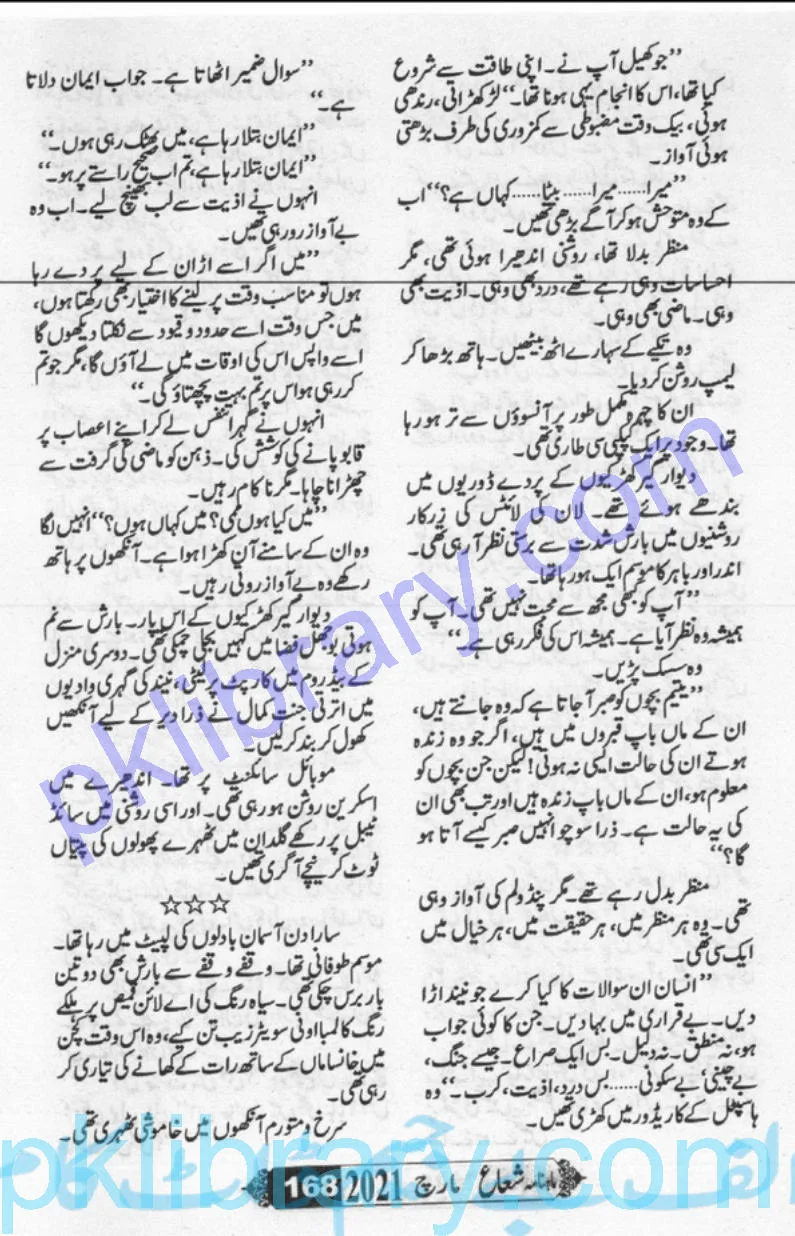 ’’جو کھیل آپ نے۔ اپنی طاقت سے شروع
کیا تھا، اس کا انجام یہی ہونا تھا۔‘‘ لڑکھڑائی، رندھی
ہوئی، بیک وقت مضبوطی سے کمزوری کی طرف بڑھتی
ہوئی آواز۔
’’میرا...... میرا...... بیٹا...... کہاں ہے؟‘‘ اب
کے وہ متوحش ہو کر آگے بڑھی تھیں۔
منظر بدلا تھا، روشنی اندھیرا ہوئی تھی، مگر
احساسات وہی رہے تھے، درد بھی وہی۔ اذیت بھی
وہی۔ ماضی بھی وہی۔
وہ تکیے کے سہارے اٹھ بیٹھیں۔ ہاتھ بڑھا کر
لیمپ روشن کر دیا۔
ان کا چہرہ مکمل طور پر آنسوؤں سے تر ہو رہا
تھا۔ وجود پر ایک کپکپی سی طاری تھی۔
دیوار گیر کھڑکیوں کے پردے ڈوریوں میں
بندھے ہوئے تھے۔ لان کی لائٹس کی زرکار
روشنیوں میں بارش شدت سے برستی نظر آ رہی تھی۔
اندر اور باہر کا موسم ایک ہو رہا تھا۔
’’آپ کو کبھی مجھ سے محبت نہیں تھی۔ آپ کو
ہمیشہ وہ نظر آیا ہے۔ ہمیشہ اس کی فکر رہی ہے۔‘‘
وہ سسک پڑیں۔
’’یتیم بچوں کو صبر آ جاتا ہے کہ وہ جانتے ہیں،
ان کے ماں باپ قبروں میں ہیں، اگر جو وہ زندہ
ہوتے ان کی حالت ایسی نہ ہوتی! لیکن جن بچوں کو
معلوم ہو، ان کے ماں باپ زندہ ہیں اور تب بھی ان
کی یہ حالت ہے۔ ذرا سوچو انہیں صبر کیسے آتا ہو
گا؟‘‘
منظر بدل رہے تھے۔ مگر پنڈولم کی آواز وہی
تھی۔ وہ ہر منظر میں، ہر حقیقت میں، ہر خیال میں
ایک سی تھی۔
’’انسان ان سوالات کا کیا کرے جو نیند اڑا
دیں۔ بے قراری میں بہا دیں۔ جن کا کوئی جواب
ہو، نہ منطق۔ نہ دلیل۔ بس ایک صراع۔ جیسے جنگ،
بے چینی، بے سکونی...... بس درد، اذیت، کرب۔‘‘ وہ
ہاسپٹل کے کاریڈور میں کھڑی تھیں۔
’’سوال ضمیر اٹھاتا ہے۔ جواب ایمان دلاتا
ہے۔‘‘
’’ایمان بتلا رہا ہے، میں بھٹک رہی ہوں۔‘‘
’’ایمان بتلا رہا ہے، تم اب صحیح راستے پر ہو۔‘‘
انہوں نے اذیت سے لب بھینچ لیے۔ اب وہ
بے آواز رو رہی تھیں۔
’’میں اگر اسے اڑان کے لیے پر دے رہا
ہوں تو مناسب وقت پر لینے کا اختیار بھی رکھتا ہوں،
میں جس وقت اسے حدود و قیود سے نکلتا دیکھوں گا
اسے واپس اس کی اوقات میں لے آؤں گا، مگر جو تم
کر رہی ہو اس پر تم بہت پچھتاؤ گی۔‘‘
انہوں نے گہرا تنفس لے کر اپنے اعصاب پر
قابو پانے کی کوشش کی۔ ذہن کو ماضی کی گرفت سے
چھڑانا چاہا۔ مگر ناکام رہیں۔
’’میں کیا ہوں ممی؟ میں کہاں ہوں؟‘‘ انہیں لگا
وہ ان کے سامنے آن کھڑا ہوا ہے۔ آنکھوں پر ہاتھ
رکھے وہ بے آواز روتی رہیں۔
دیوار گیر کھڑکیوں کے اس پار۔ بارش سے نم
ہوتی بوجھل فضا میں کہیں بجلی چمکی تھی۔ دوسری منزل
کے بیڈ روم میں کارپٹ پر لیٹی، نیند کی گہری وادیوں
میں اترتی جنت کمال نے ذرا دیر کے لیے آنکھیں
کھول کر بند کر لیں۔
موبائل سائلنٹ پر تھا۔ اندھیرے میں
اسکرین روشن ہو رہی تھی۔ اور اسی روشنی میں سائڈ
ٹیبل پر رکھے گلدان میں ٹھہرے پھولوں کی پتیاں
ٹوٹ کر نیچے آ گری تھیں۔
☆☆☆
سارا دن آسمان بادلوں کی لپیٹ میں رہا تھا۔
موسم طوفانی تھا۔ وقفے وقفے سے بارش بھی دو تین
بار برس چکی تھی۔ سیاہ رنگ کی اے لائن قمیص پر ہلکے
رنگ کا لمبا اونی سویٹر زیب تن کیے، وہ اس وقت کچن
میں خانساماں کے ساتھ رات کے کھانے کی تیاری کر
رہی تھی۔
سرخ و متورم آنکھوں میں خاموشی ٹھہری تھی۔
ماہنامہ شعاع مارچ 2021 168
pklibrary.com
pklibrary.com